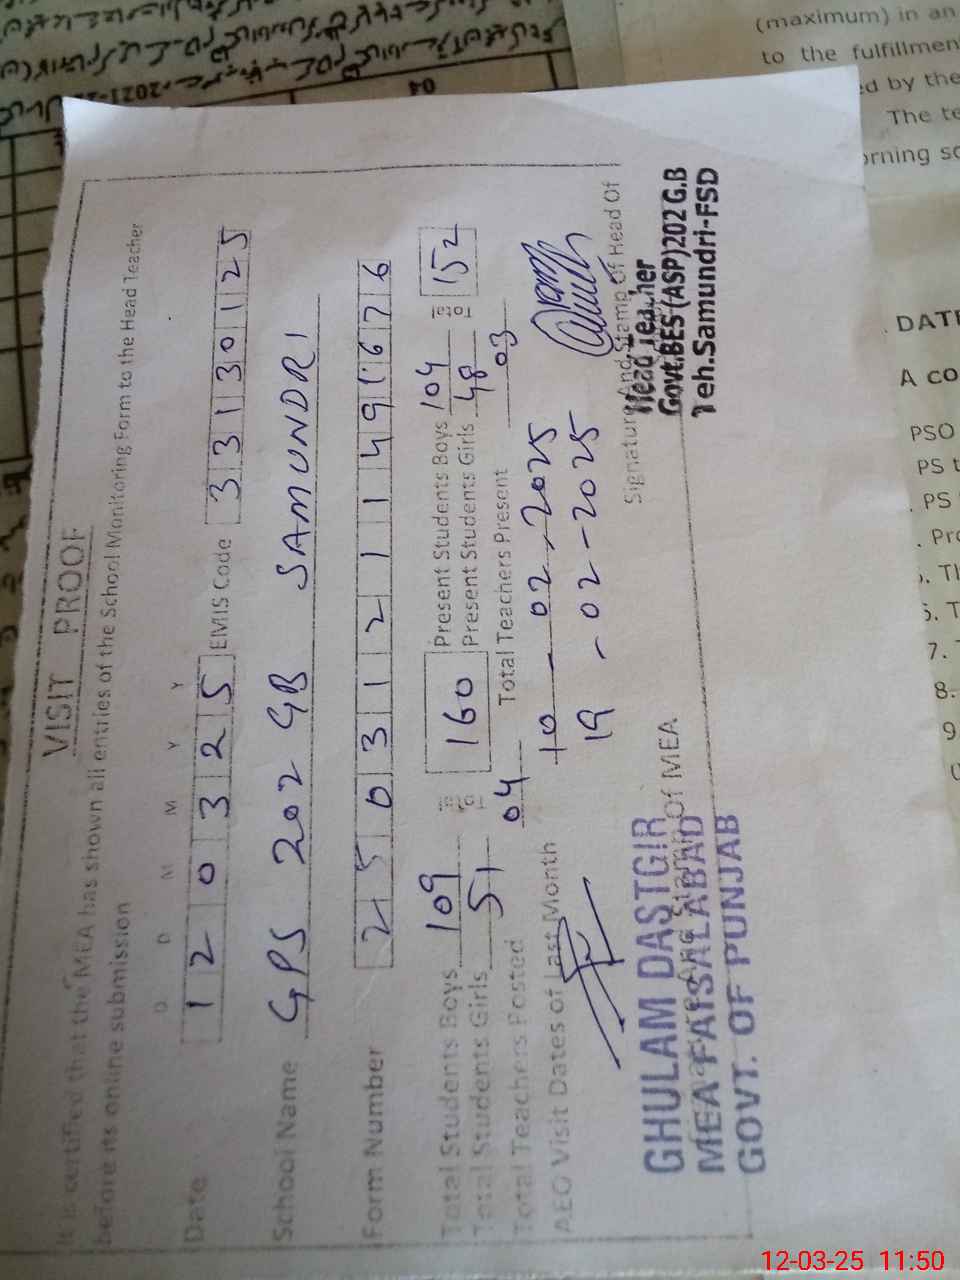 VISIT PROOF
It is certified that the MEA has shown all entries of the School Monitoring Form to the Head Teacher
before its online submission
D D M M Y Y
Date 1 2 0 3 2 5 EMIS Code 3 3 1 3 0 1 2 5
School Name GPS 202 GB SAMUNDRI
Form Number 2 5 0 3 1 2 1 1 4 9 1 6 7 6
Total Students Boys 109
Total Students Girls 51
160
Present Students Boys 104
Present Students Girls 48
152
Total Teachers Posted 04 Total Teachers Present 03
AEO Visit Dates of Last Month 10 - 02 - 2025
19 - 02 - 2025
Signature And Stamp Of MEA
GHULAM DASTGIR
MEA FAISALABAD
GOVT. OF PUNJAB
Signature And Stamp Of Head Of
Head Teacher
Govt.BES(ASP)202 G.B
Teh.Samundri-FSD
(maximum) in an
to the fulfillmen
ed by the
The te
orning sc
DATE
A CO
PSO
PS t
PS
Pro
6. T
7. T
8.
9
04
12-03-25 11:50